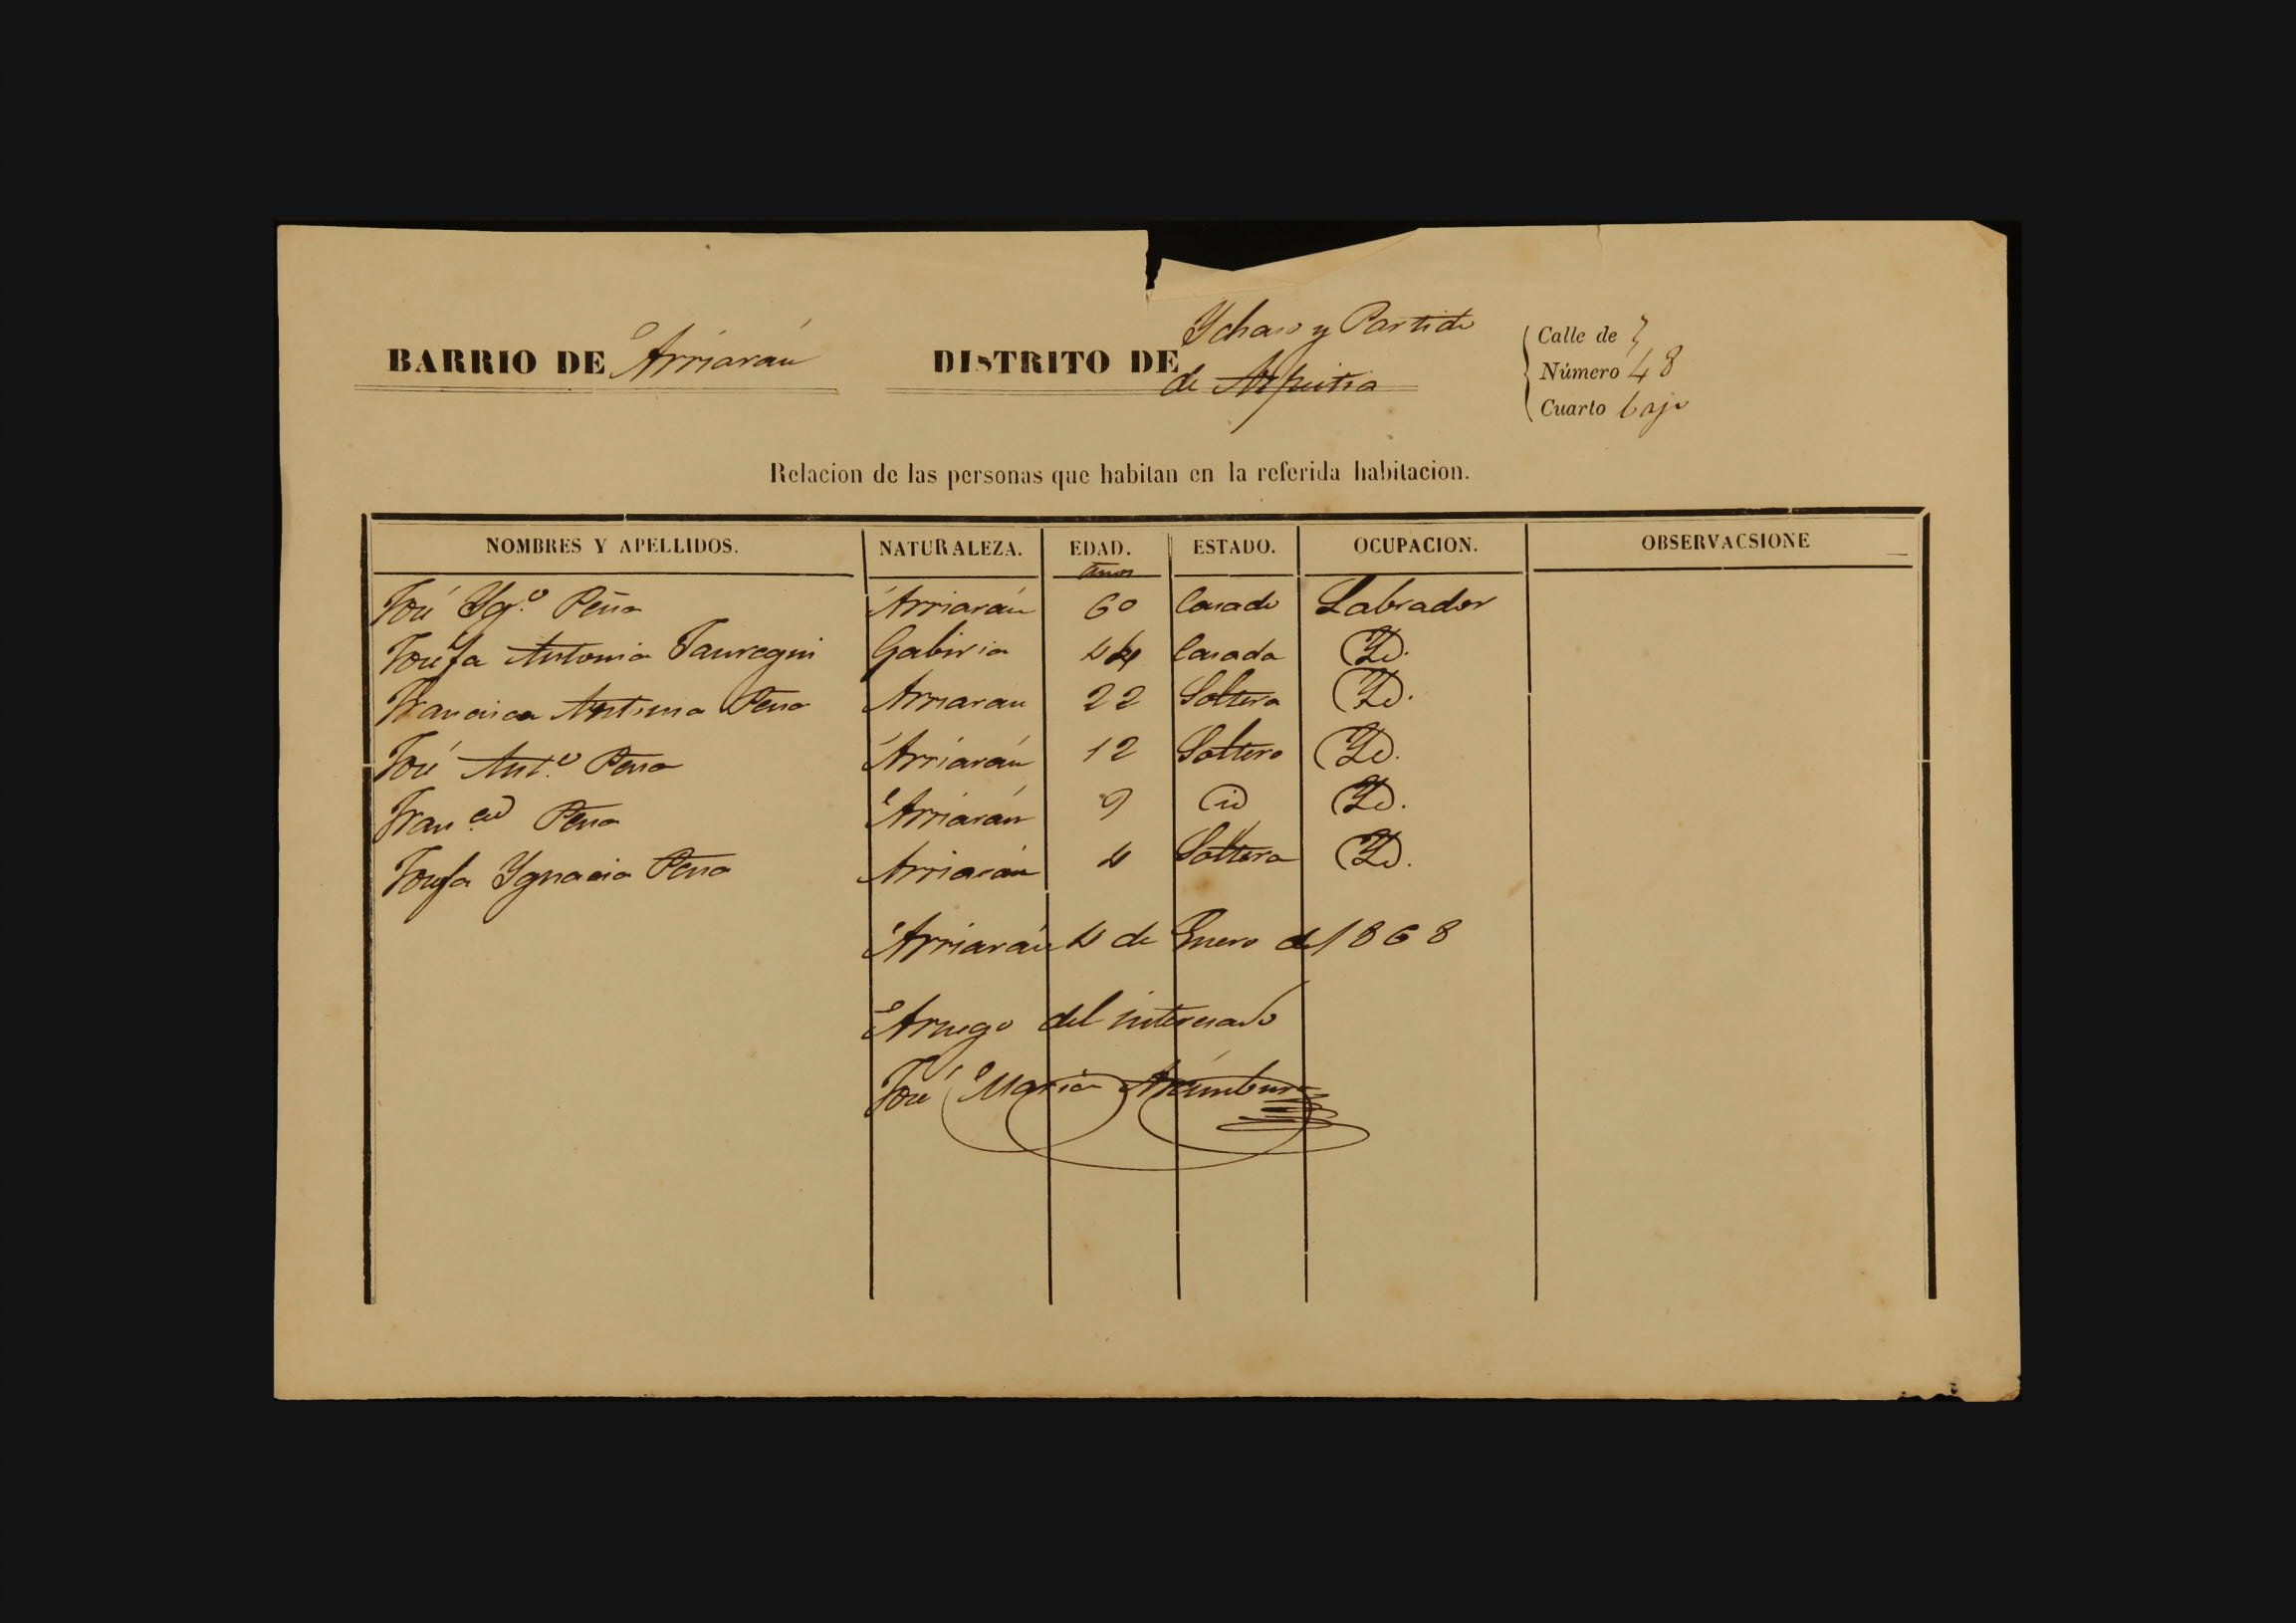 Ychaso y Partido
BARRIO DE Arriarán DISTRITO DE de Azpeitia
Calle de
Número 48
Cuarto bajo
Relacion de las personas que habitan en la referida habitacion.
NOMBRES Y APELLIDOS. NATURALEZA. EDAD. ESTADO. OCUPACION. OBSERVACSIONE
años
José Ygº Peña Arriarán 60 Casado Labrador
Josefa Antonia Jauregui Gabiria 44 Casada Yd.
Francisca Antonia Peña Arriaran 22 Soltera Yd.
José Antº Peña Arriarán 12 Soltero Yd.
Franco Peña Arriarán 9 id Yd.
Josefa Ygnacia Peña Arriarán 4 Soltera Yd.
Arriarán 4 de Enero de 1868
Aruego del interesado
José Maria Arámburu